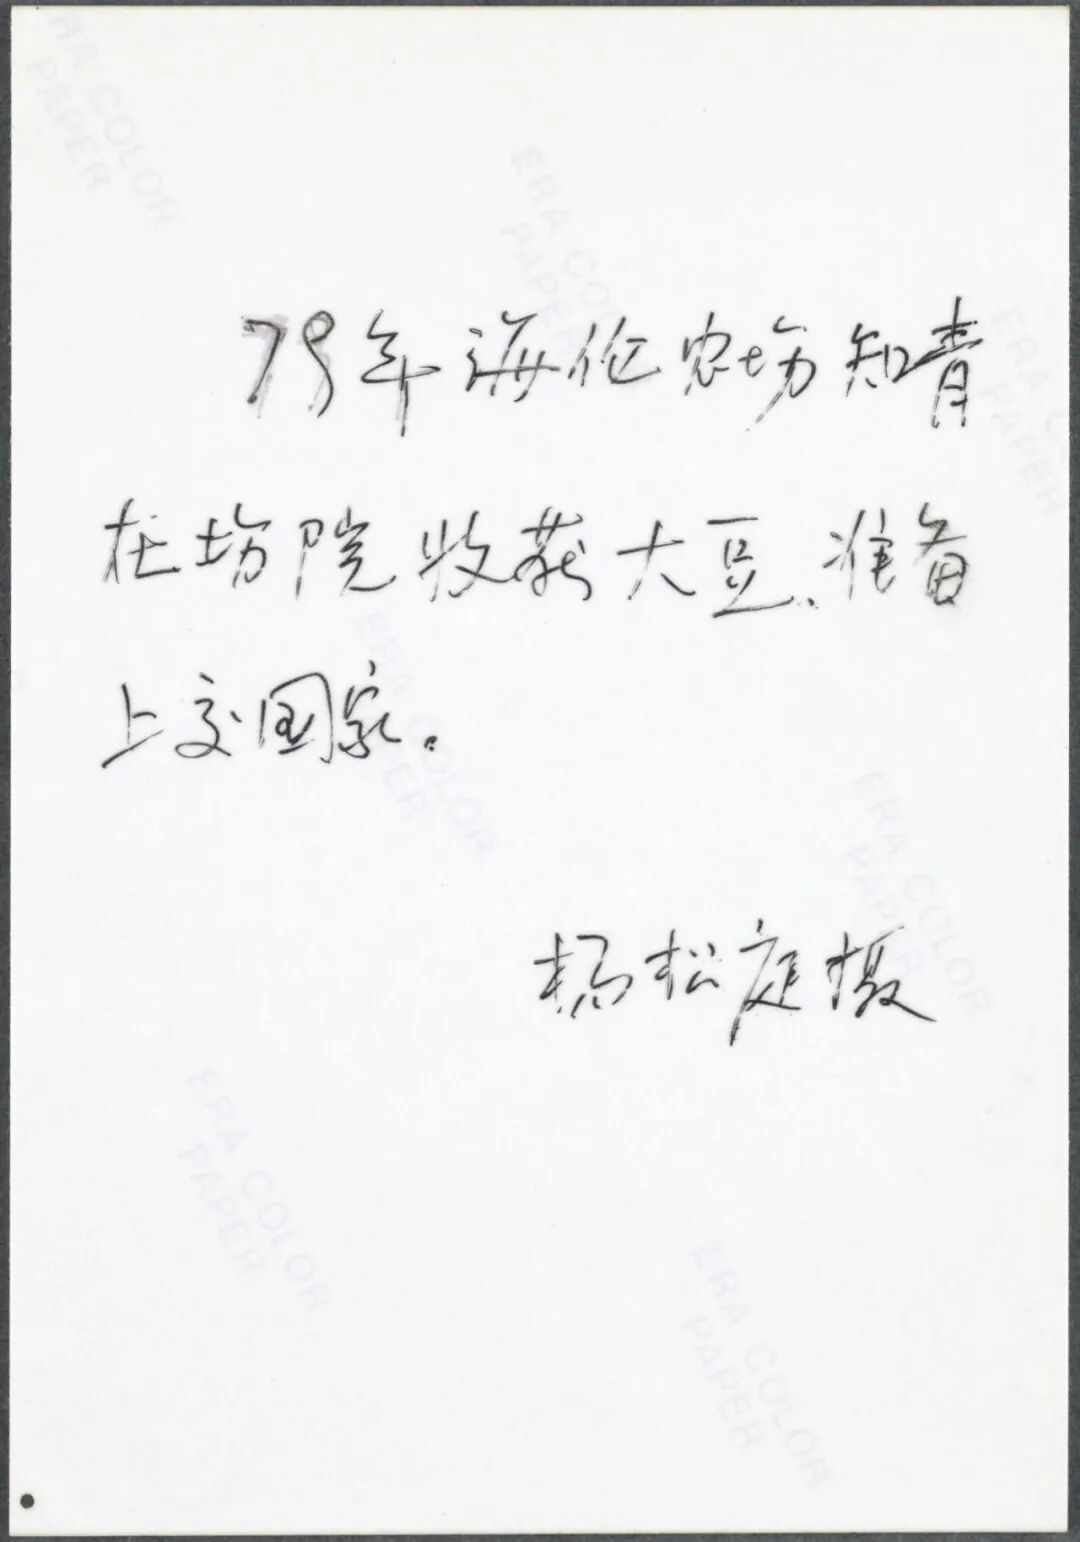 79年海伦农场知青
在场院收获大豆、准备
上交国家。
杨松庭摄
ERA COLOR
PAPER
ERA COLOR
PAPER
ERA COLOR
PAPER
ERA COLOR
PAPER
ERA COLOR
PAPER
ERA COLOR
PAPER
ERA COLOR
PAPER